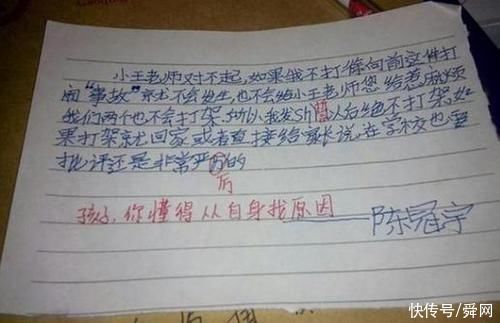 小王老师对不起,如果我不打徐向前这件打
闹"事故"就不会发生,也不会给小王老师您给惹麻烦
我们两个也不会打架,所以我发shi誓以后绝不打架,如
果打架就回家或者直接给家长说,在学校也要
批评还是非常严历的
厉
孩子,你懂得从自身找原因
陈冠宇
快传号/舜网